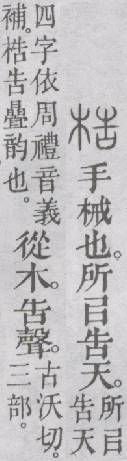 梏 手械也。所㠯告天。所㠯告天
四字依周禮音義補。梏告疊韵也。從木。告聲。古沃切。三部。